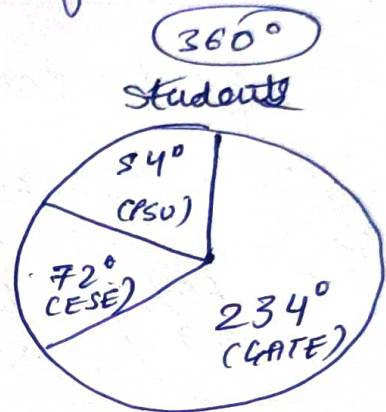 360°
Students
54°
(PSU)
72°
(ESE)
234°
(GATE)